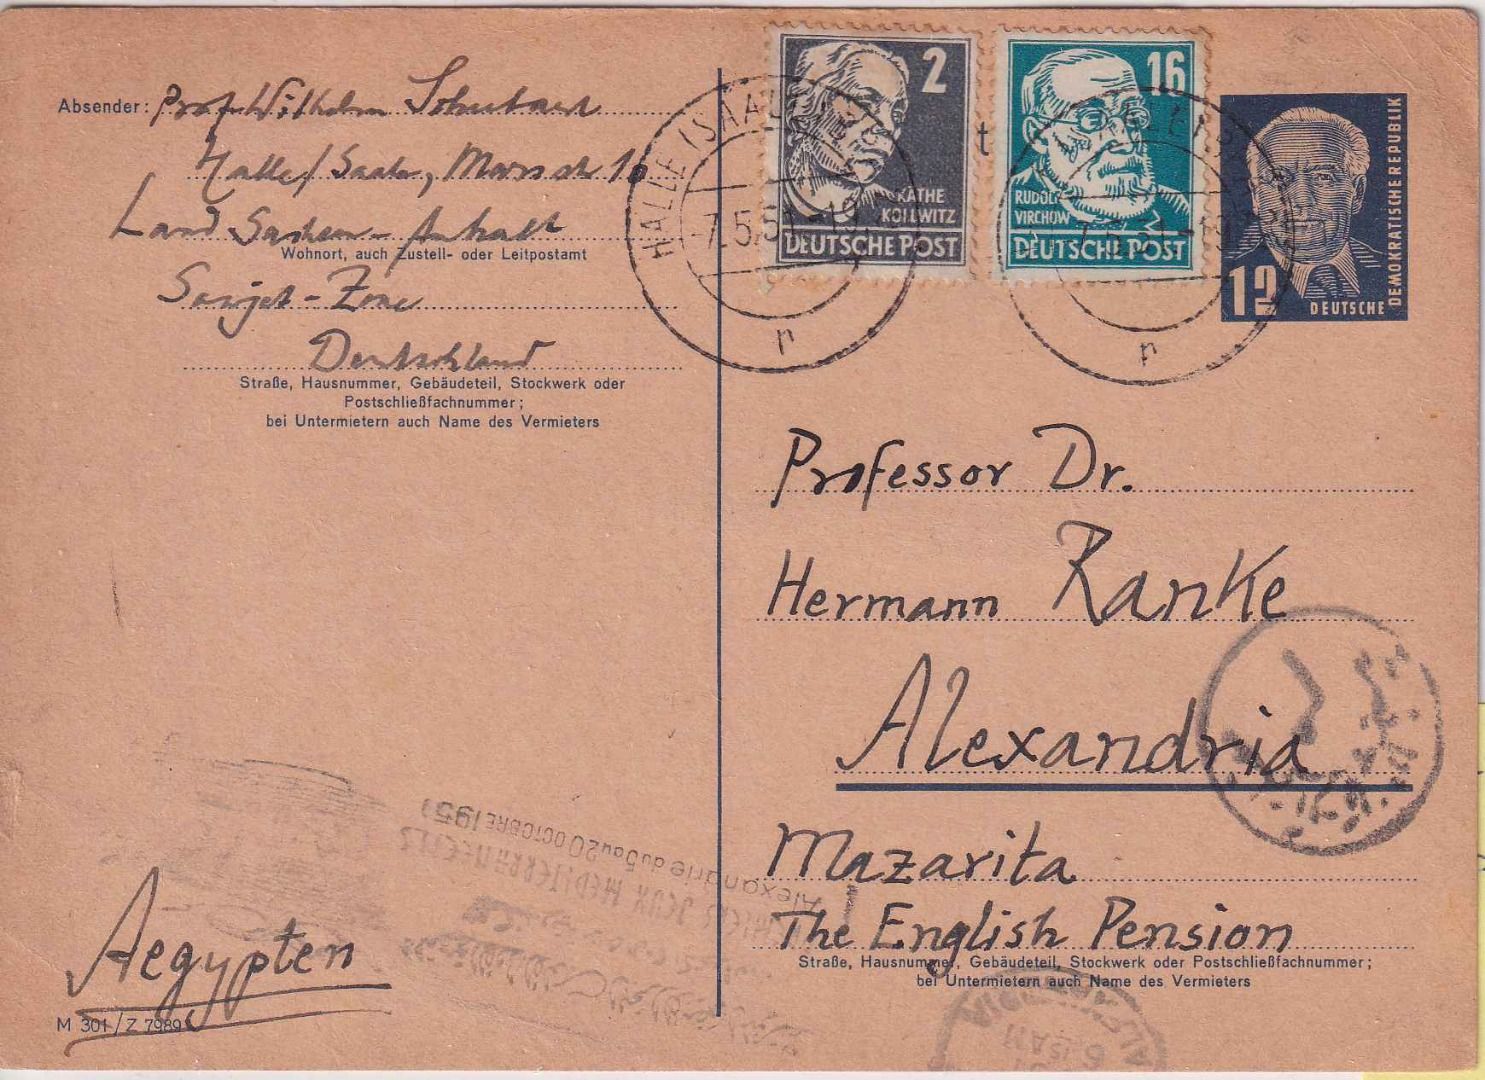 Absender: Prof. Wilhelm Schubart
Halle/Saale,
Land Sachsen-Anhalt
Wohnort, auch Zustell- oder Leitpostamt
Sowjet-Zone
Deutschland
Straße, Hausnummer, Gebäudeteil, Stockwerk oder
Postschließfachnummer;
bei Untermietern auch Name des Vermieters
2
KÄTHE
KOLLWITZ
DEUTSCHE POST
16
RUDOLF
VIRCHOW
DEUTSCHE POST
12
DEUTSCHE
DEMOKRATISCHE REPUBLIK
HALLE (SAALE)
7.5.51
r
r
Professor Dr.
Hermann Ranke
Alexandria
Mazarita
The English Pension
Straße, Hausnummer, Gebäudeteil, Stockwerk oder Postschließfachnummer;
bei Untermietern auch Name des Vermieters
JEUX MEDITERRANEENS
Alexandrie du 5 au 20 OCTOBRE 1951
Aegypten
M 301/Z 7989